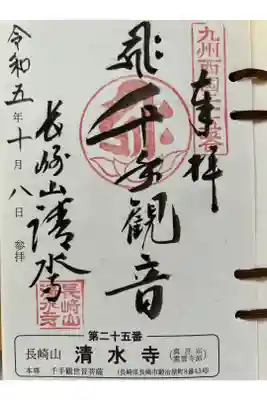 九州西国二十五番
奉拝
千手観音
長崎山清水寺
令和五年十月八日参拝
長崎山
清水寺
第二十五番
長崎山 清水寺 (真言宗霊雲寺派)
本尊 千手観世音菩薩 (長崎県長崎市鍛冶屋町8番43号)